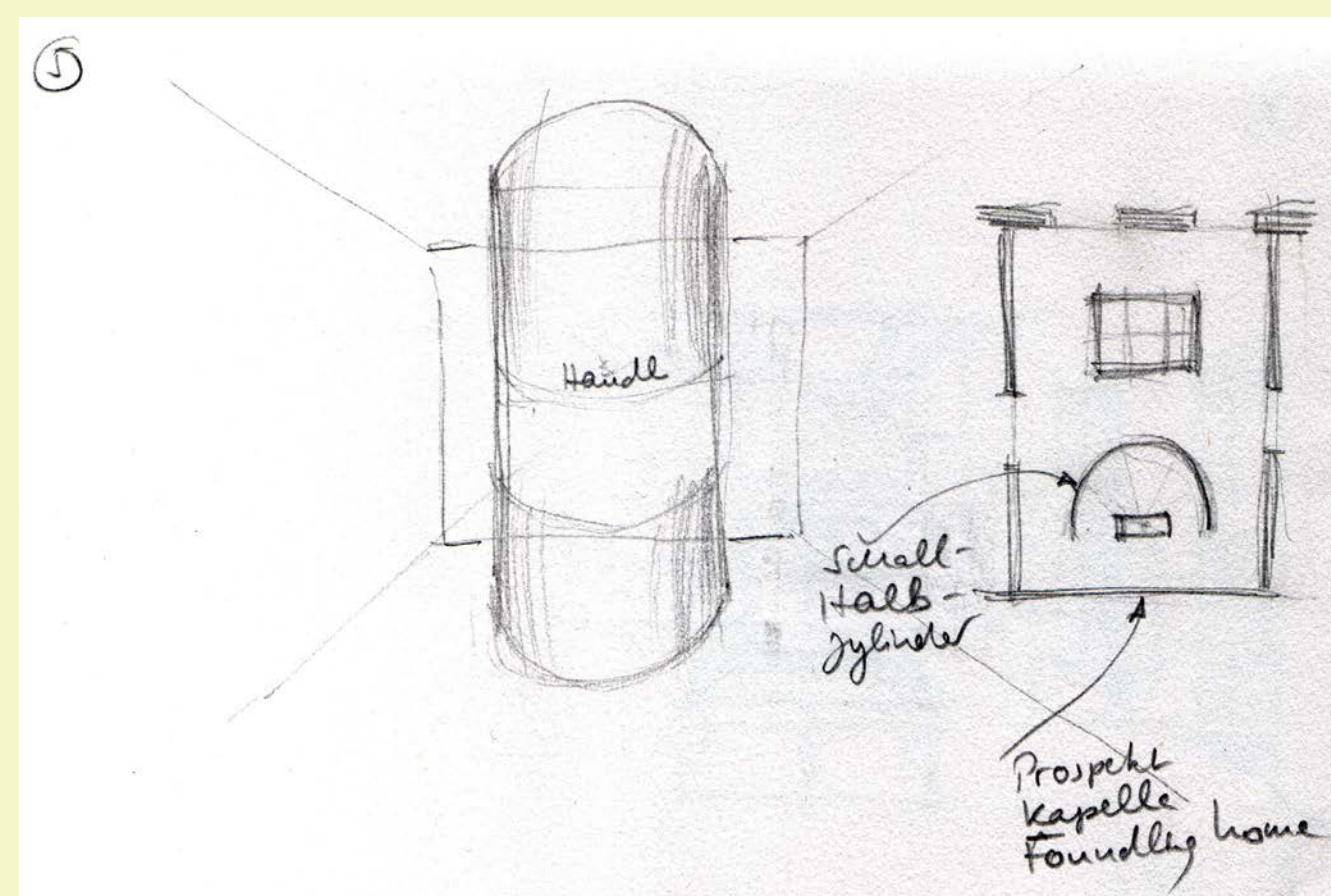 5
Händl
Schall-
Halb-
zylinder
Prospekt
Kapelle
Foundling home